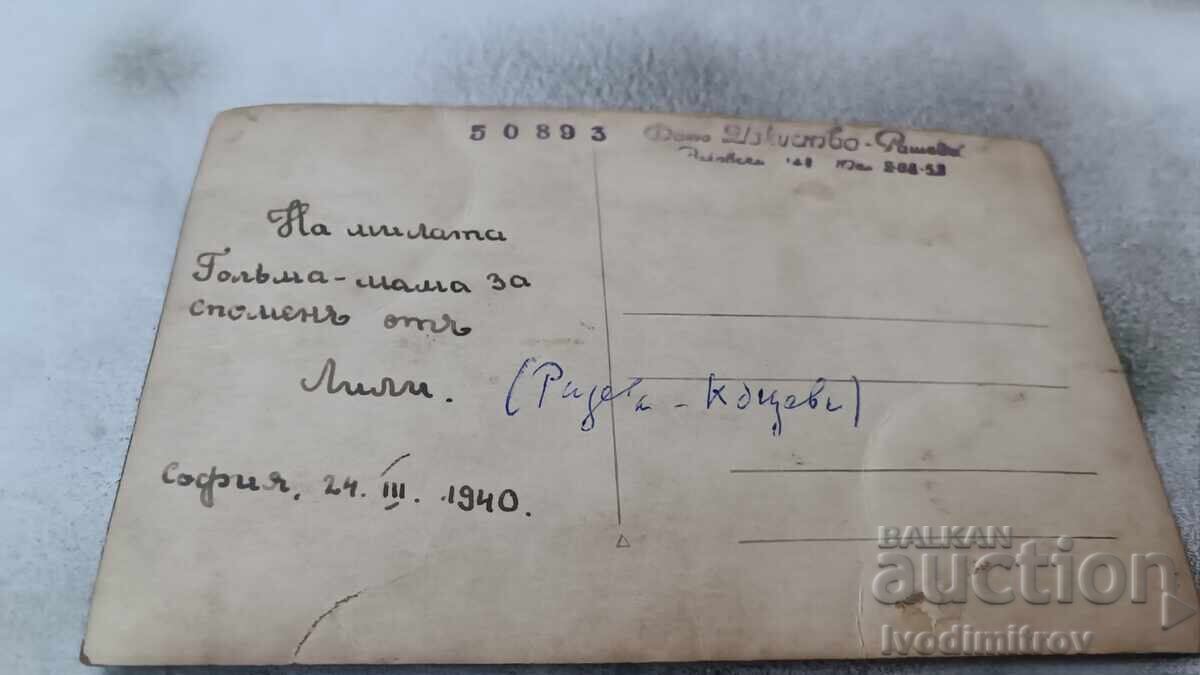 50893
Фото Изкуство - Рашеви
Раковски 141 Тел.
На милата
Голѣма-мама за
споменъ отъ
Лили. ( - Коцева)
София, 24. III. 1940.
BALKAN
auction
Ivodimitrov